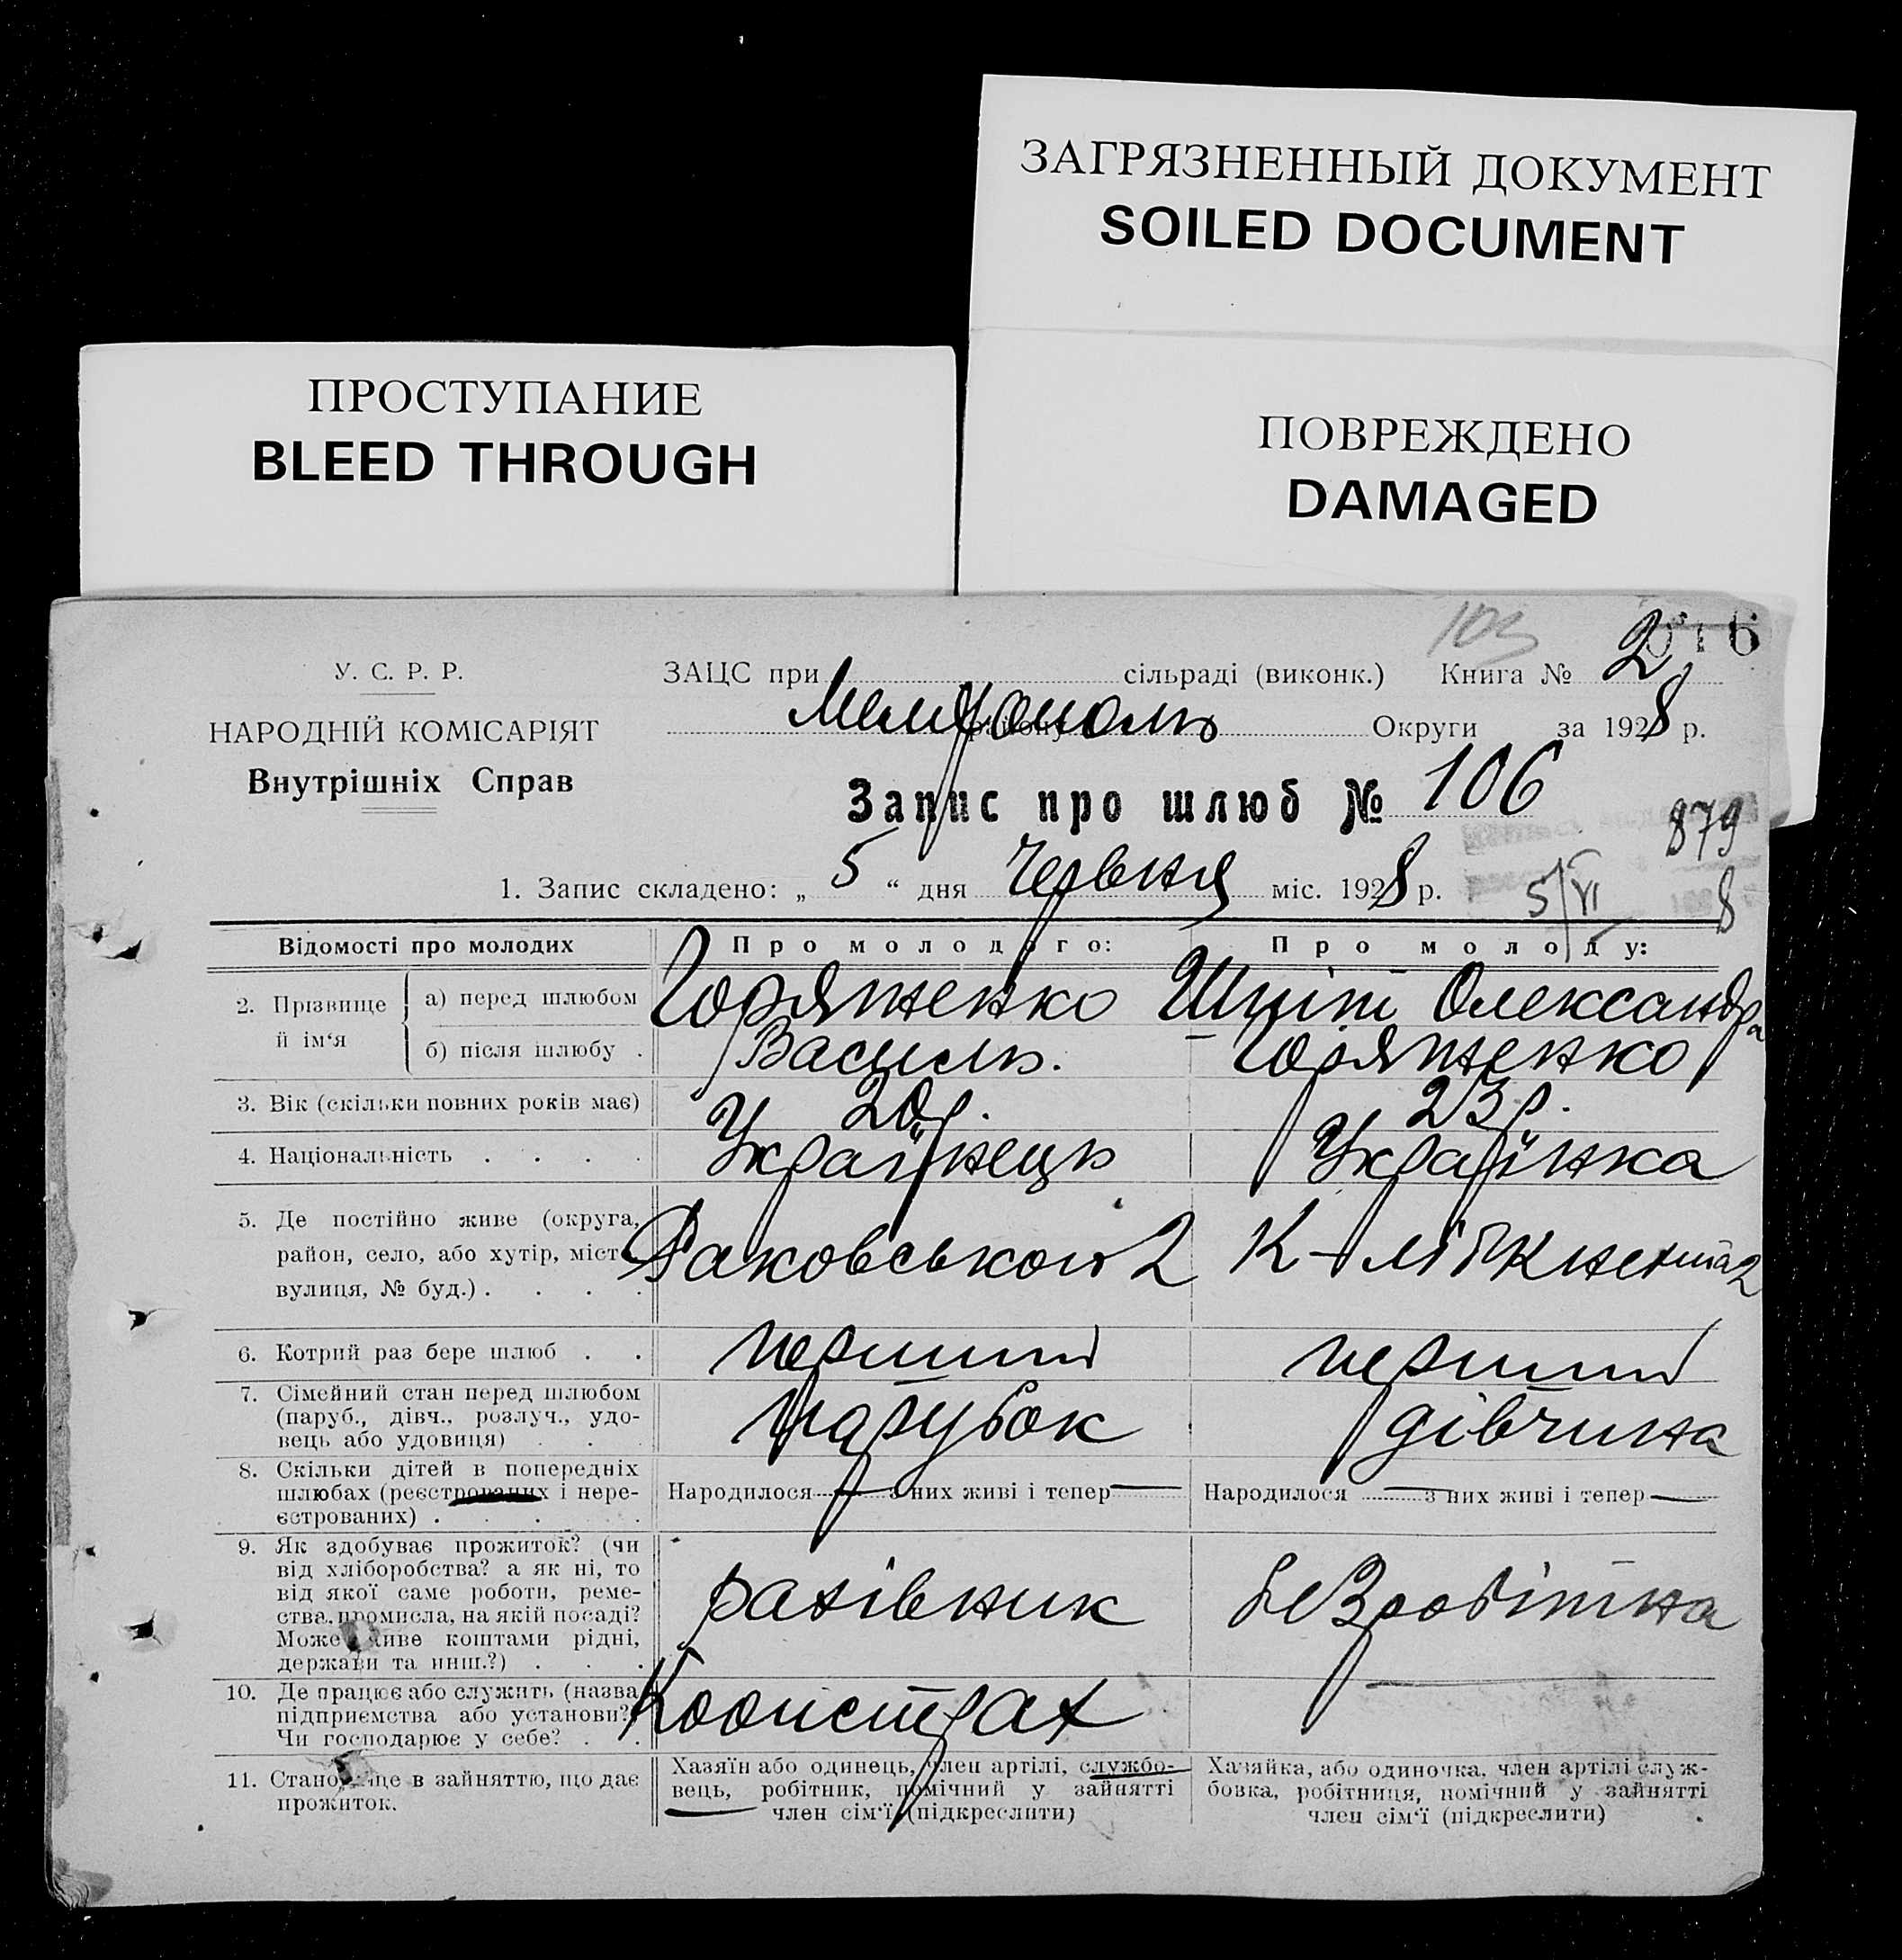 ЗАГРЯЗНЕННЫЙ ДОКУМЕНТ
SOILED DOCUMENT
ПРОСТУПАНИЕ
BLEED THROUGH
ПОВРЕЖДЕНО
DAMAGED
103
У. С. Р. Р.
НАРОДНІЙ КОМІСАРІЯТ
Внутрішніх Справ
ЗАЦС при сільраді (виконк.) Книга № 2
Мелітополь району Округи за 1928 р.
Запис про шлюб № 106
879
1. Запис складено: „ 5 “ дня Червня міс. 1928 р.
5/VI 8
Відомості про молодих
Про молодого:
Про молоду:
2. Прізвище й ім‘я
а) перед шлюбом
б) після шлюбу .
Василь.
Олександра
3. Вік (скільки повних років має)
20 р.
23 р.
4. Національність . . . .
Українець
Українка
5. Де постійно живе (округа,
район, село, або хутір, місто
вулиця, № буд.) . . . .
Раковського 2
К-Лібкнехта 2
6. Котрий раз бере шлюб . .
перший
перший
7. Сімейний стан перед шлюбом
(паруб., дівч., розлуч., удо-
вець або удовиця) . . .
парубок
дівчина
8. Скільки дітей в попередніх
шлюбах (реєстрованих і нере-
єстрованих) . . . . .
Народилося — з них живі і тепер —
Народилося — з них живі і тепер —
9. Як здобуває прожиток? (чи
від хліборобства? а як ні, то
від якої саме роботи, реме-
ства, промисла, на якій посаді?
Може живе коштами рідні,
держави та инш.?) . . .
рахівник
безробітна
10. Де працює або служить (назва
підприємства або установи?
Чи господарює у себе? . .
Коопстрах
—
11. Становище в зайняттю, що дає
прожиток.
Хазяїн або одинець, член артілі, службо-
вець, робітник, помічний у зайнятті
член сім‘ї (підкреслити)
Хазяйка, або одиночка, член артілі служ-
бовка, робітниця, помічний у зайнятті
член сім‘ї (підкреслити)